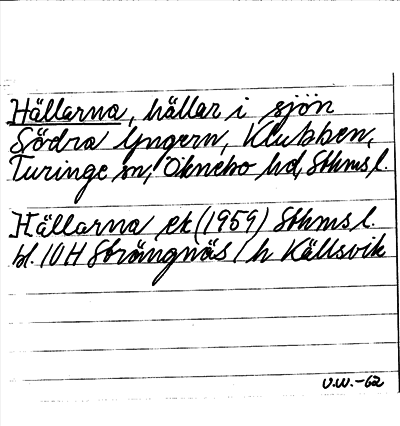 Hällarna, hällar i sjön
Södra Yngern, Klubben,
Turinge sn, Öknebo hd, Sthms l.
Hällarna ek (1959) Sthms l.
bl. 10H Strängnäs / h Källsvik
V.W.-62